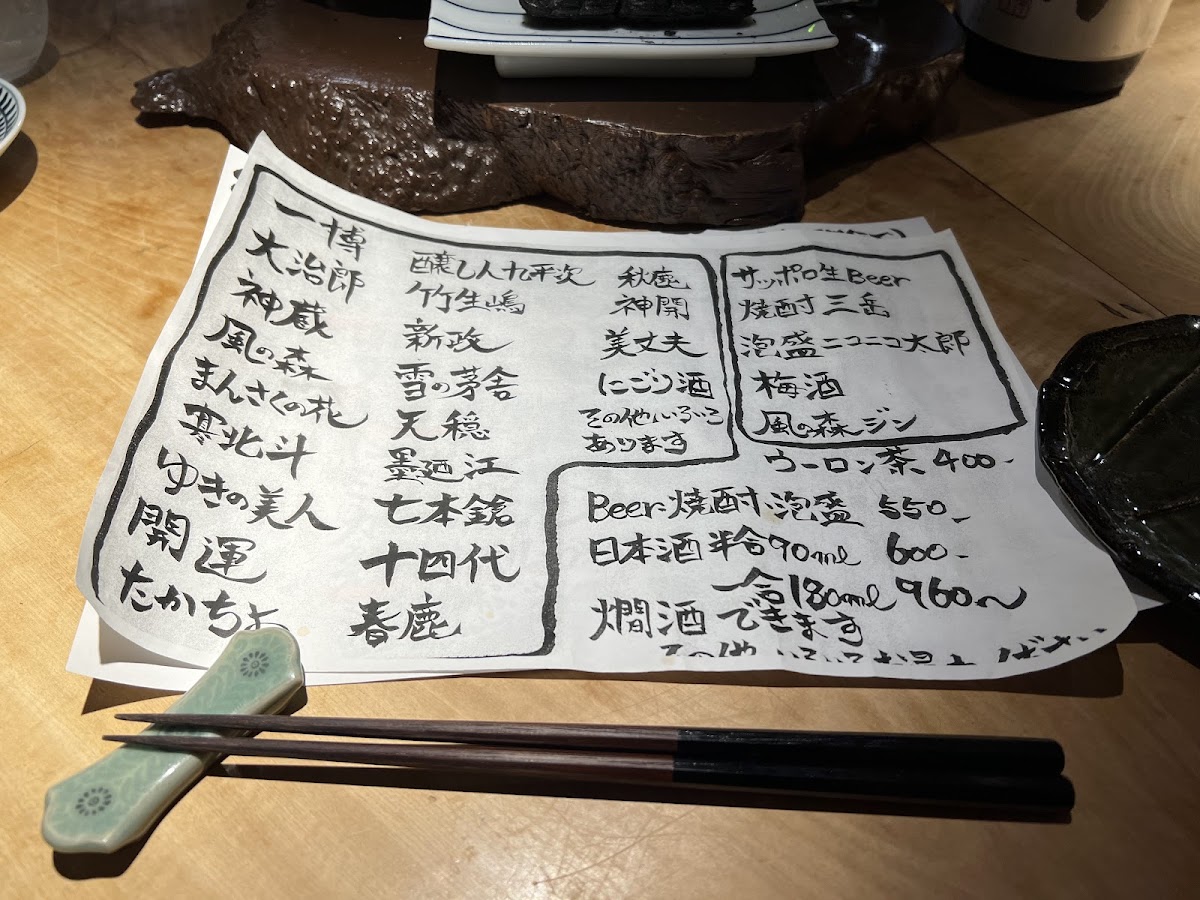 一博
大治郎
神蔵
風の森
まんさくの花
寒北斗
ゆきの美人
開運
たかちよ
醸し人九平次
竹生嶋
新政
雪の茅舎
天穏
墨廼江
七本鎗
十四代
春鹿
秋鹿
神開
美丈夫
にごり酒
その他いろいろ
あります
サッポロ生Beer
焼酎 三岳
泡盛ニコニコ太郎
梅酒
風の森ジン
ウーロン茶 400-
Beer・焼酎・泡盛 550-
日本酒 半合90ml 600-
一合180ml 960〜
燗酒できます
その他 いろいろ